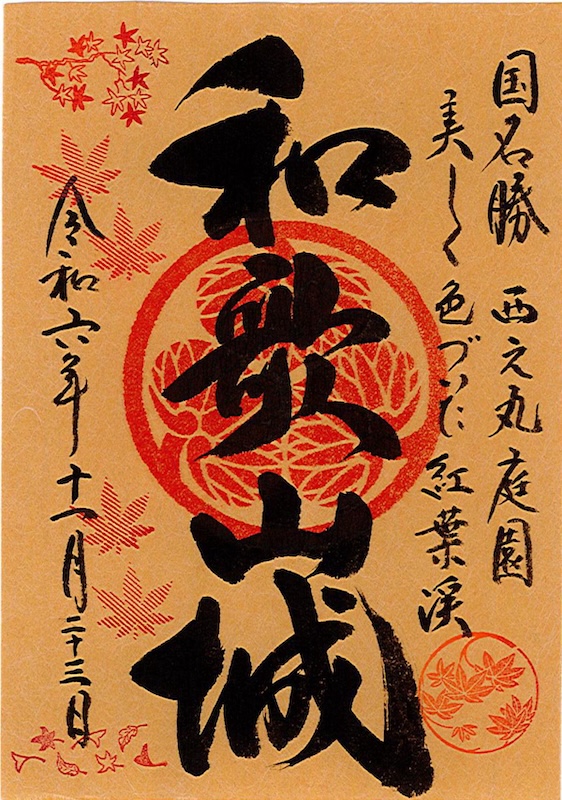 国名勝 西之丸庭園
美しく色づいた紅葉渓
和歌山城
令和六年十一月二十三日